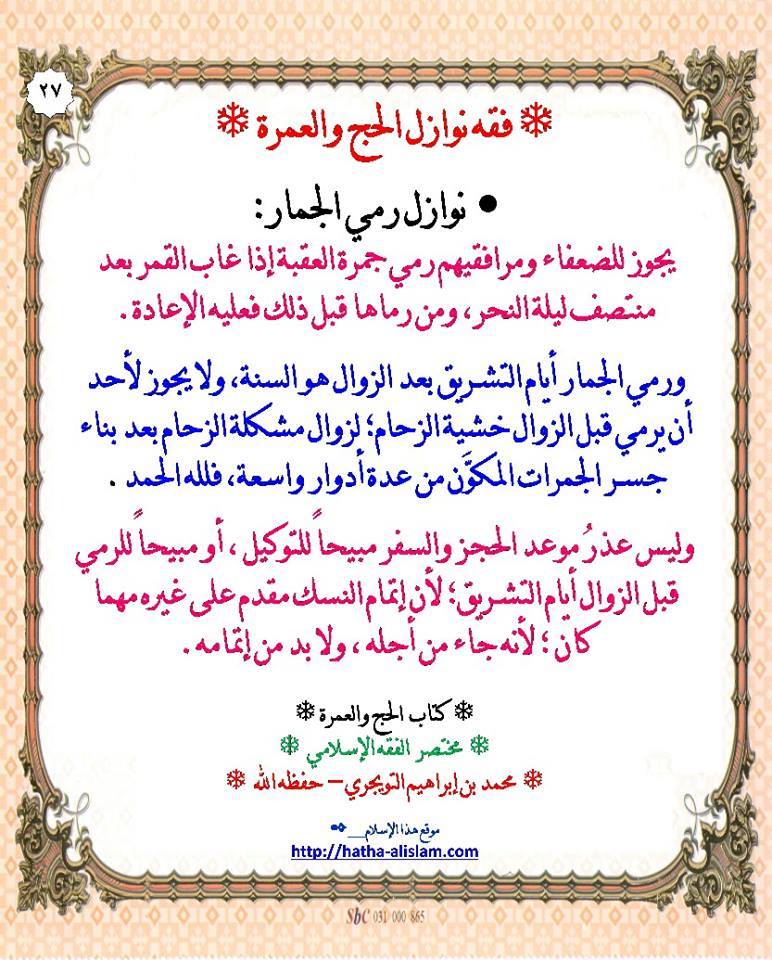 ٢٧
❄ فقه نوازل الحج والعمرة ❄
● نوازل رمي الجمار:
يجوز للضعفاء ومرافقيهم رمي جمرة العقبة إذا غاب القمر بعد
منتصف ليلة النحر، ومن رماها قبل ذلك فعليه الإعادة.
ورمي الجمار أيام التشريق بعد الزوال هو السنة، ولا يجوز لأحد
أن يرمي قبل الزوال خشية الزحام؛ لزوال مشكلة الزحام بعد بناء
جسر الجمرات المكوَّن من عدة أدوار واسعة، فلله الحمد .
وليس عذرُ موعد الحجز والسفر مبيحاً للتوكيل، أو مبيحاً للرمي
قبل الزوال أيام التشريق؛ لأن إتمام النسك مقدم على غيره مهما
كان؛ لأنه جاء من أجله، ولا بد من إتمامه.
❄ كتاب الحج والعمرة ❄
❄ مختصر الفقه الإسلامي ❄
❄ محمد بن إبراهيم التويجري – حفظه الله ❄
موقع هذا الإسلام__
http://hatha-alislam.com
SbC 031 000 865